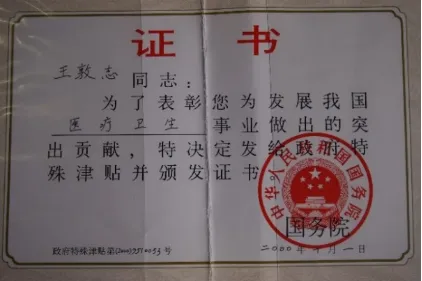 证 书
王敦志同志：
为了表彰您为发展我国
医疗卫生事业做出的突
出贡献，特决定发给政府特
殊津贴并颁发证书。
中华人民共和国国务院
国务院
政府特殊津贴第(2000)号
二000年 月一日